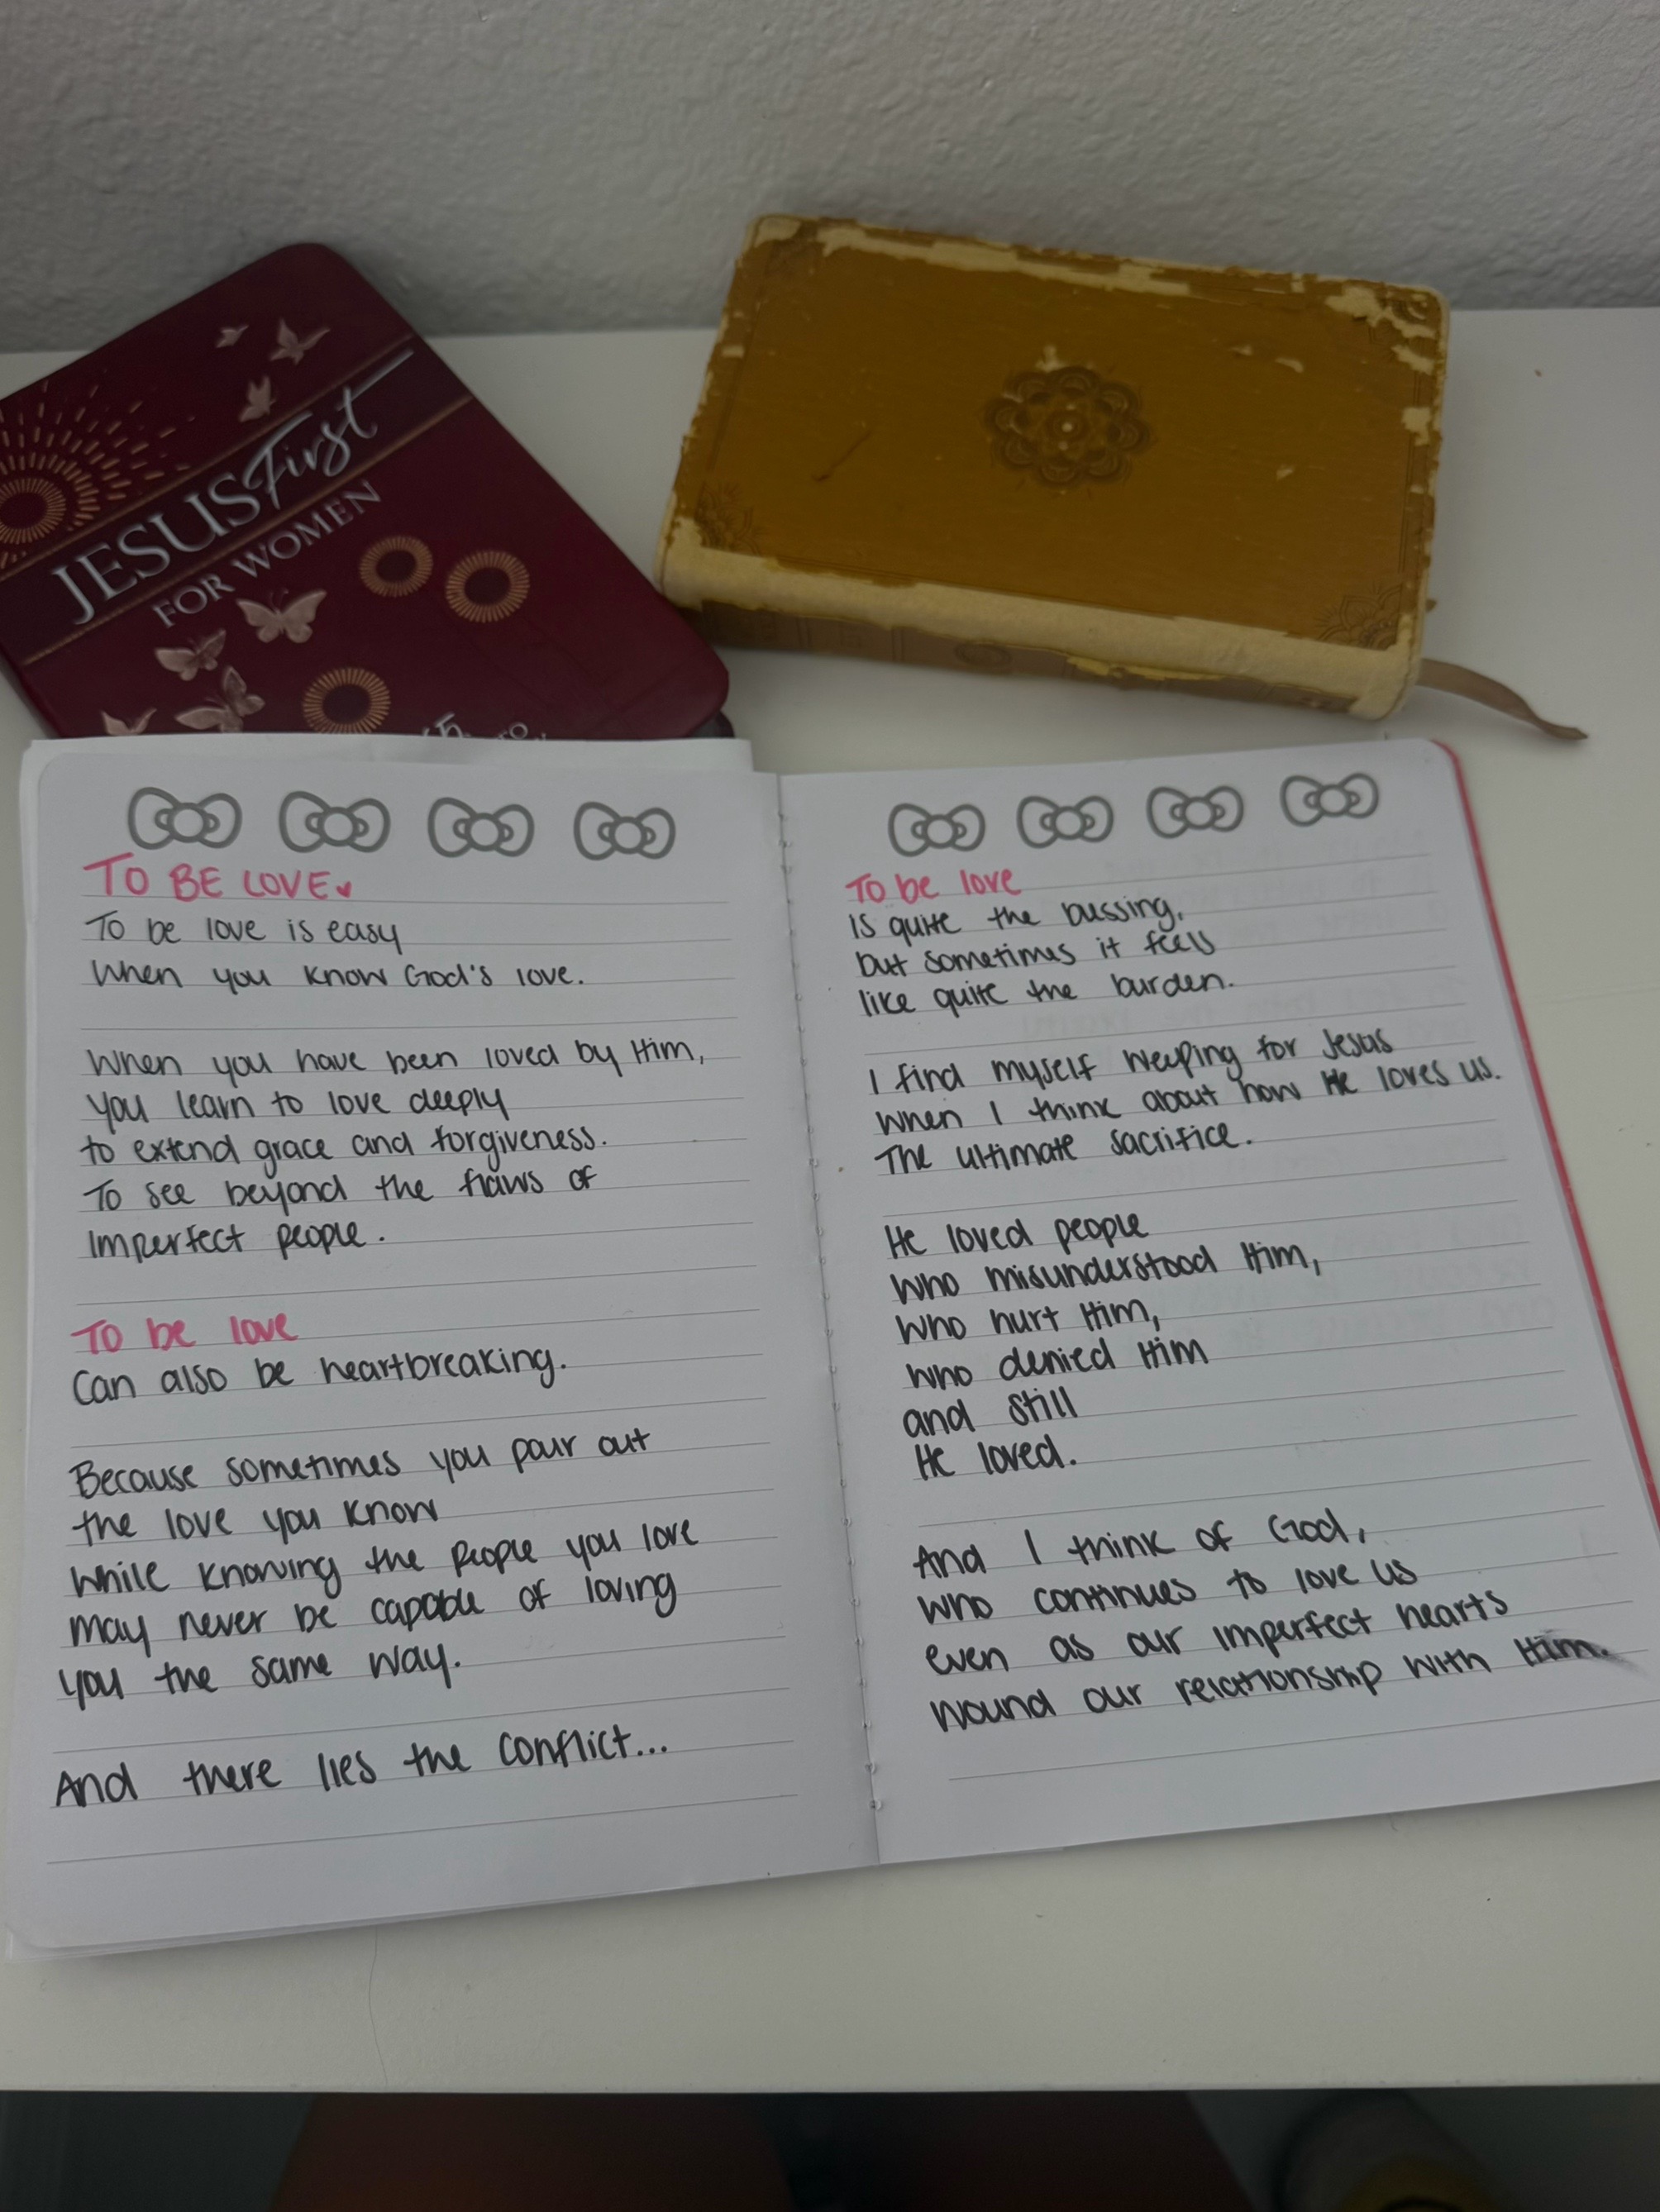 JESUS First
FOR WOMEN
TO BE LOVE♥
To be love is easy
When you know God's love.
When you have been loved by Him,
you learn to love deeply
to extend grace and forgiveness.
To see beyond the flaws of
imperfect people.
To be love
Can also be heartbreaking.
Because sometimes you pour out
the love you know
while knowing the people you love
may never be capable of loving
you the same way.
And there lies the conflict...
To be love
is quite the blessing,
but sometimes it feels
like quite the burden.
I find myself weeping for Jesus
when I think about how He loves us.
The ultimate sacrifice.
He loved people
who misunderstood Him,
who hurt Him,
who denied Him
and still
He loved.
And I think of God,
who continues to love us
even as our imperfect hearts
wound our relationship with Him.